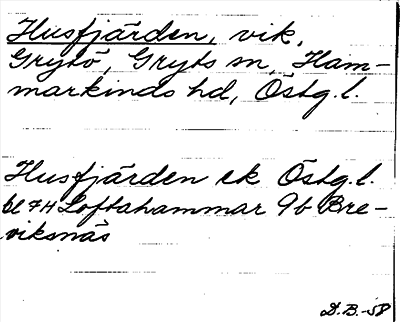 Husfjärden, vik,
Grytö, Gryts sn, Ham-
markinds hd, Östg.l.
Husfjärden ek Östg.l.
bl 7H Loftahammar 9b Bre-
viksnäs
D.B.-58